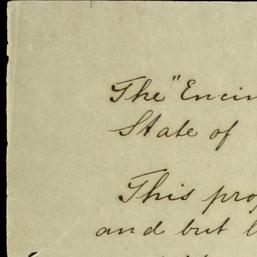 The "Encin
State of
This prop
and but l